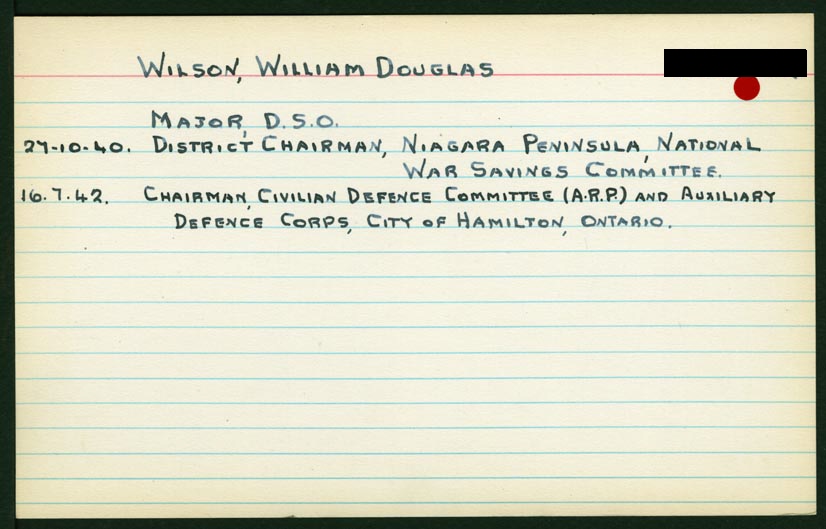 WILSON, WILLIAM DOUGLAS
MAJOR, D.S.O.
27-10-40. DISTRICT CHAIRMAN, NIAGARA PENINSULA, NATIONAL
WAR SAVINGS COMMITTEE.
16.7.42. CHAIRMAN, CIVILIAN DEFENCE COMMITTEE (A.R.P.) AND AUXILIARY
DEFENCE CORPS, CITY OF HAMILTON, ONTARIO.